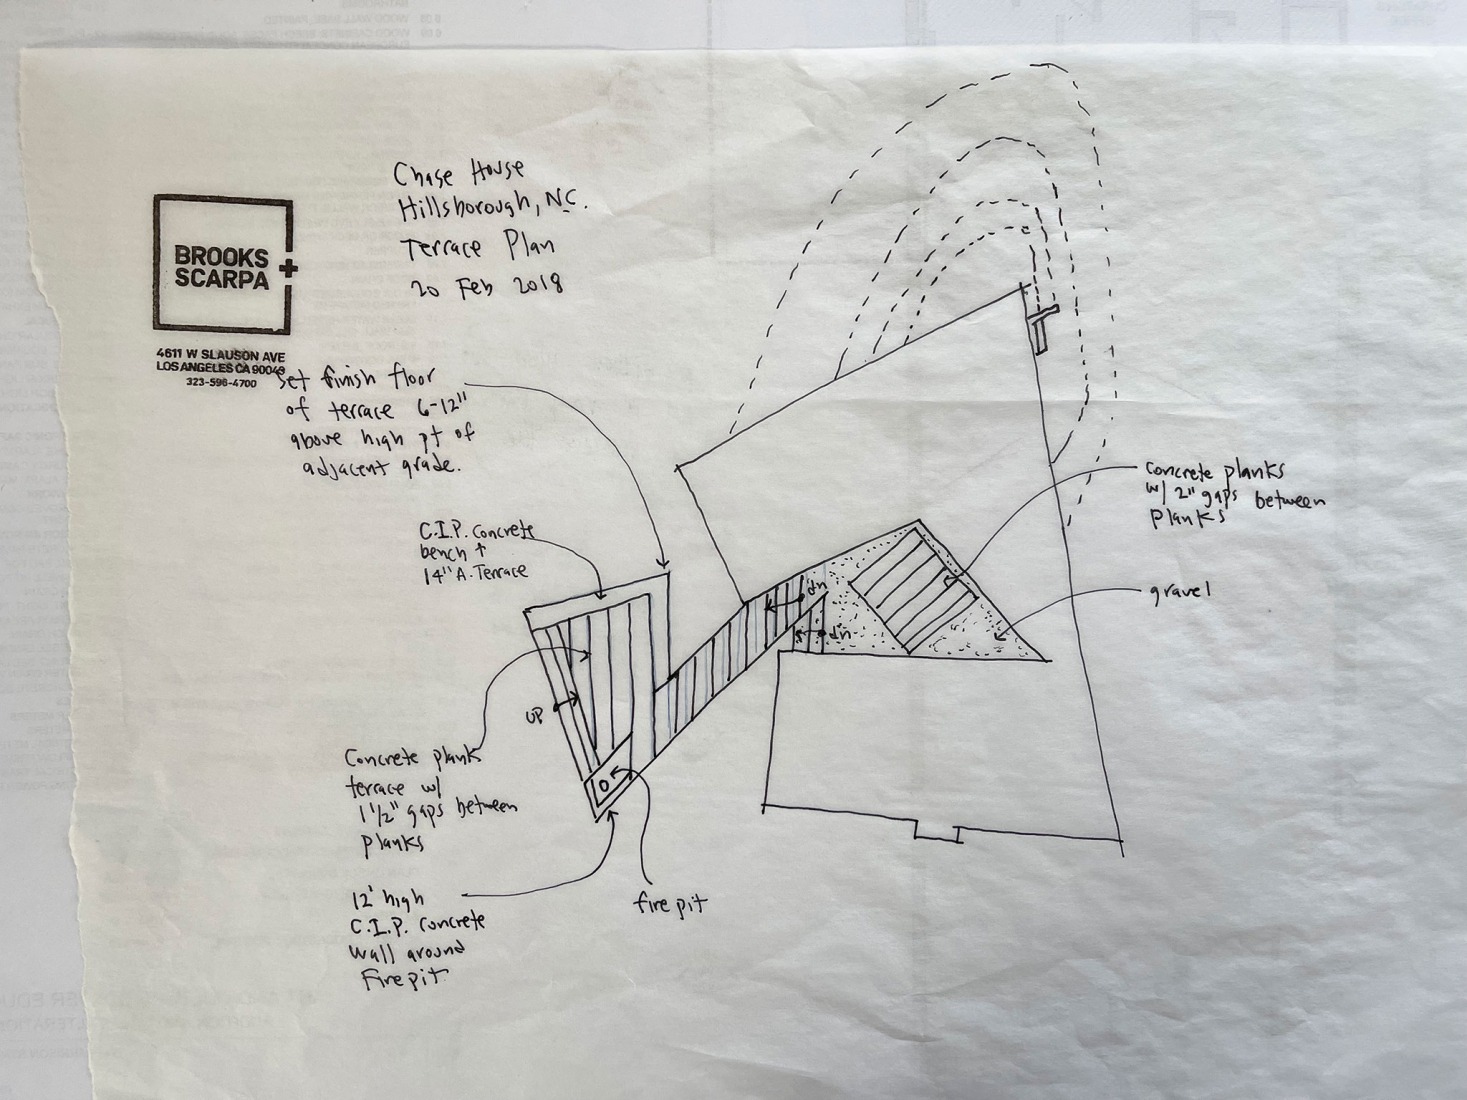 Chase House
Hillsborough, NC.
Terrace Plan
20 Feb 2018
BROOKS +
SCARPA
4611 W SLAUSON AVE
LOS ANGELES CA 90043
323-596-4700
Set finish floor
of terrace 6-12"
above high pt of
adjacent grade.
C.I.P. concrete
bench +
14" A. Terrace
Concrete planks
w/ 2" gaps between
planks
gravel
dn
dn
UP
Concrete plank
terrace w/
1 1/2" gaps between
planks
12' high
C.I.P. concrete
wall around
Firepit
fire pit